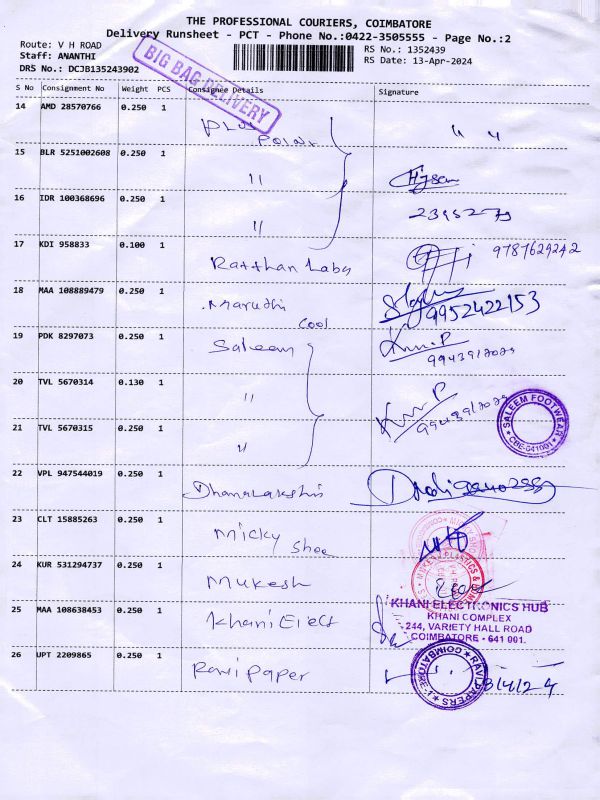 THE PROFESSIONAL COURIERS, COIMBATORE
Delivery Runsheet - PCT - Phone No.:0422-3505555 - Page No.:2
Route: V H ROAD
RS No.: 1352439
Staff: ANANTHI
RS Date: 13-Apr-2024
DRS No.: DCJB135243902
BIG BAG DELIVERY
S No Consignment No Weight PCS Consignee Details Signature
14 AMD 28570766 0.250 1
Point
15 BLR 5251002608 0.250 1 "
16 IDR 100368696 0.250 1 "
17 KDI 958833 0.100 1 Ratthan Labs 9787629242
18 MAA 108889479 0.250 1 Maruthi
Cool 9952422153
19 PDK 8297073 0.250 1 Saleem
20 TVL 5670314 0.130 1 "
SALEEM FOOTWEAR
CBE-641001
21 TVL 5670315 0.250 1 "
22 VPL 947544019 0.250 1 Dhanalakshmi
23 CLT 15885263 0.250 1 Micky Shoe
24 KUR 531294737 0.250 1 Mukesh
25 MAA 108638453 0.250 1 Khani Elect
KHANI ELECTRONICS HUB
KHANI COMPLEX
244, VARIETY HALL ROAD
COIMBATORE - 641 001.
26 UPT 2209865 0.250 1 Ravi paper
RAVI PAPERS
COIMBATORE-1